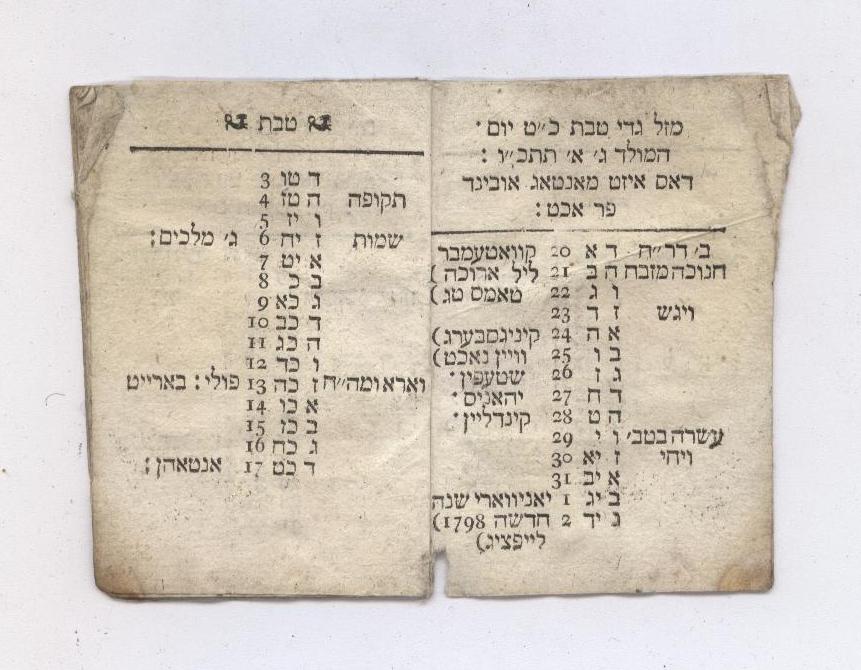 מזל גדי טבת כ״ט יום·
המולד ג׳ א׳ תתכ״ו :
דאס איזט מאנטאג אובינד
פר אכט:
ב׳ דר״ח ד א 20 קוואטעמבר
חנוכה מזבח ה ב 21 ליל ארוכה)
ו ג 22 טאמס טג)
ויגש ז ד 23
א ה 24 קיניגסבערג)
ב ו 25 וויין נאכט)
ג ז 26 שטעפין·
ד ח 27 יהאניס·
ה ט 28 קינדליין·
עשרה בטב׳ ו י 29
ויחי ז יא 30
א יב 31
ב יג 1 יאניווארי שנה
ג יד 2 חדשה 1798)
לייפציג)
טבת
ד טו 3
תקופה ה טז 4
ו יז 5
שמות ז יח 6 ג׳ מלכים:
א יט 7
ב כ 8
ג כא 9
ד כב 10
ה כג 11
ו כד 12
וארא ומה״ח ז כה 13 פולי: בארייט
א כו 14
ב כז 15
ג כח 16
ד כט 17 אנטאהן: